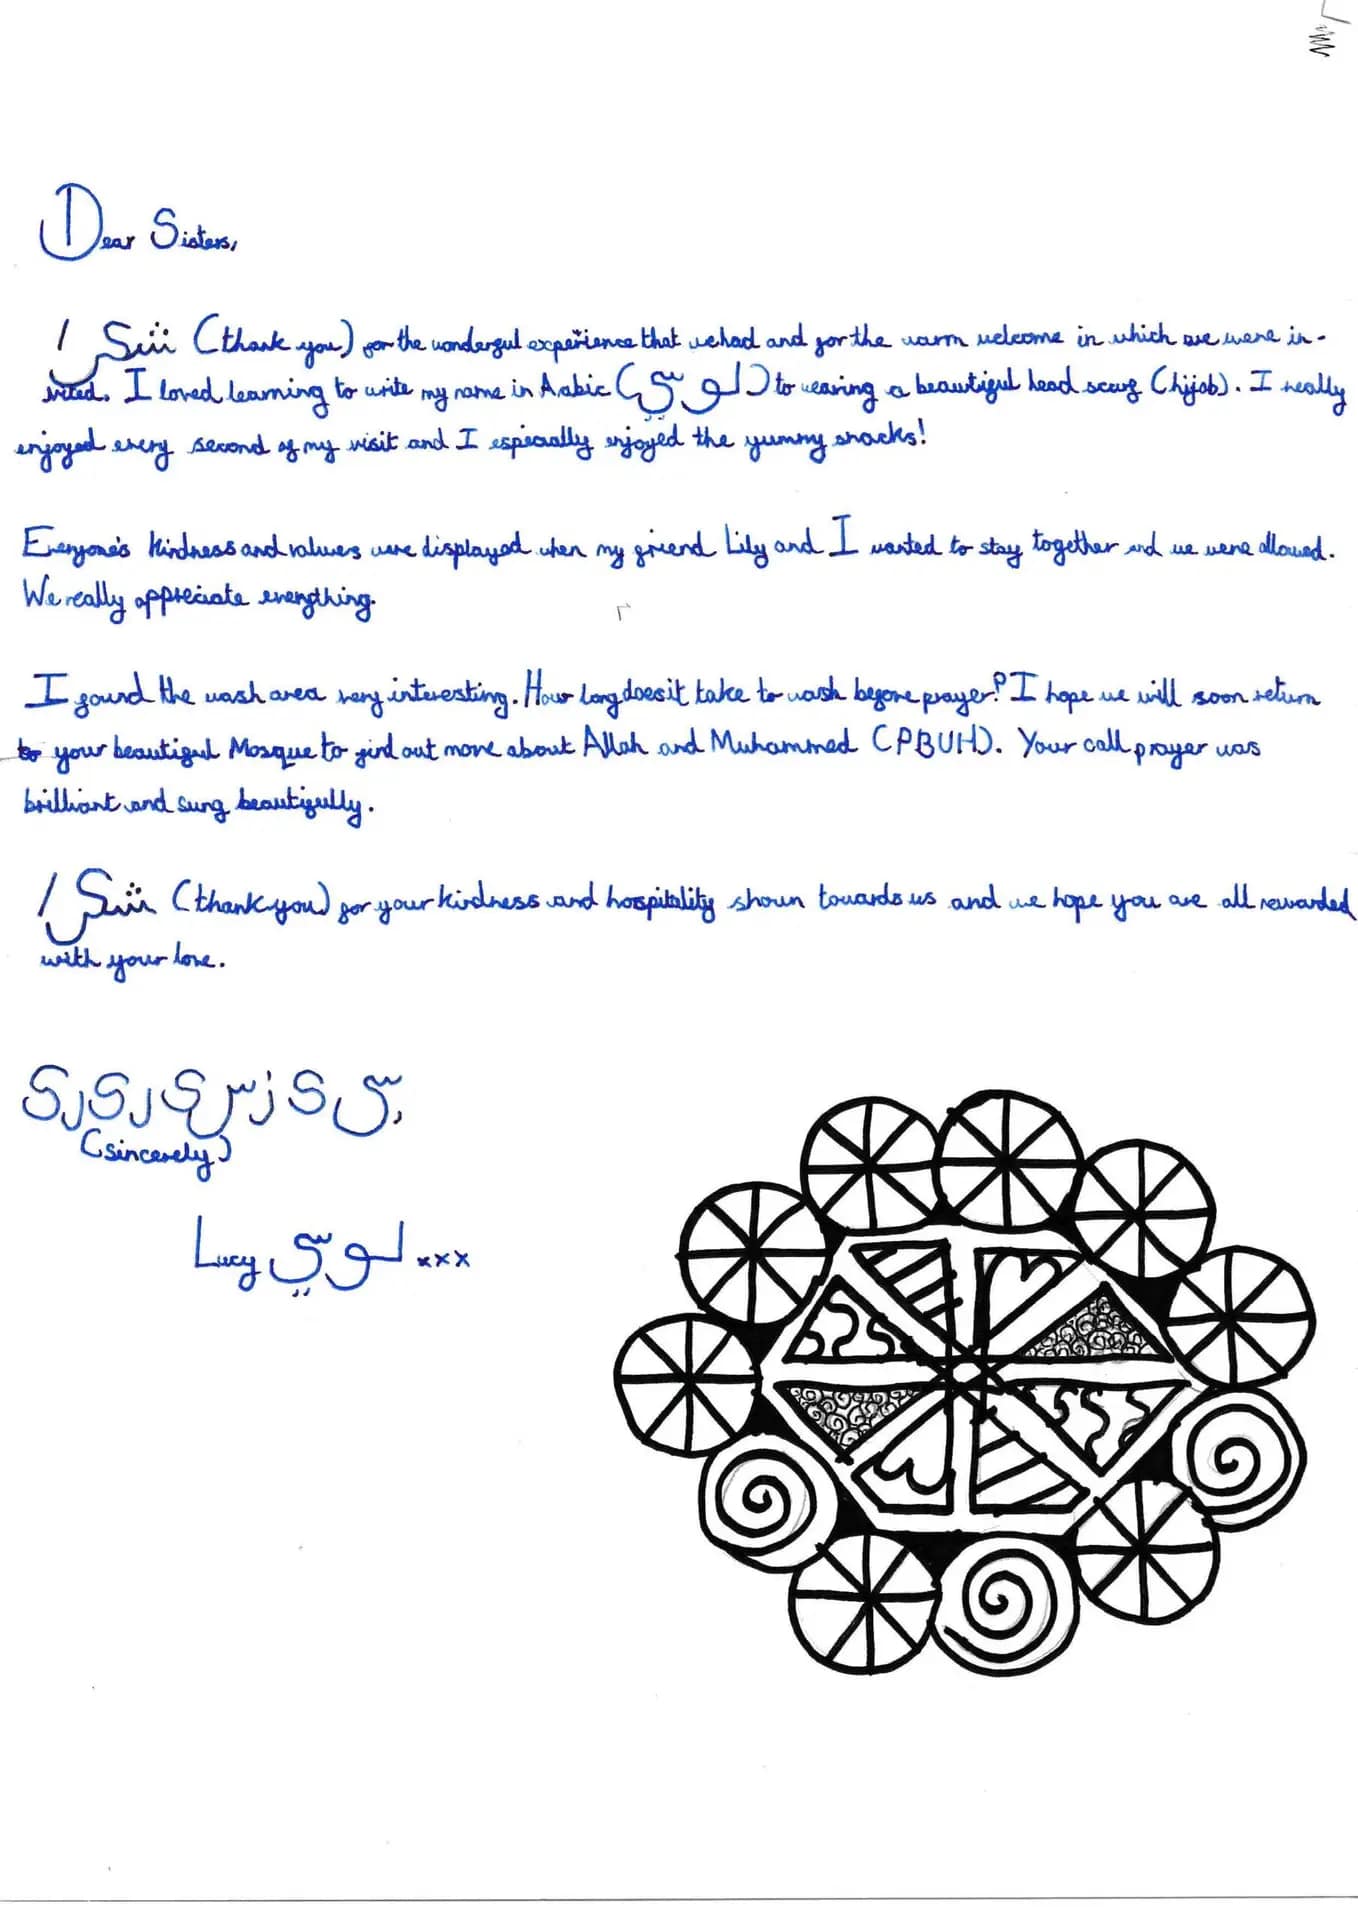 Dear Sisters,
شكرا (thank you) for the wonderful experience that we had and for the warm welcome in which we were in-
vited. I loved learning to write my name in Arabic (لوسي) to wearing a beautiful head scarf (hijab). I really
enjoyed every second of my visit and I especially enjoyed the yummy snacks!
Everyone's kindness and values were displayed when my friend Lily and I wanted to stay together and we were allowed.
We really appreciate everything.
I found the wash area very interesting. How long does it take to wash before prayer? I hope we will soon return
to your beautiful Mosque to find out more about Allah and Muhammed (PBUH). Your call prayer was
brilliant and sung beautifully.
شكرا (thank you) for your kindness and hospitality shown towards us and we hope you are all rewarded
with your love.
(sincerely)
Lucy لوسي xxx